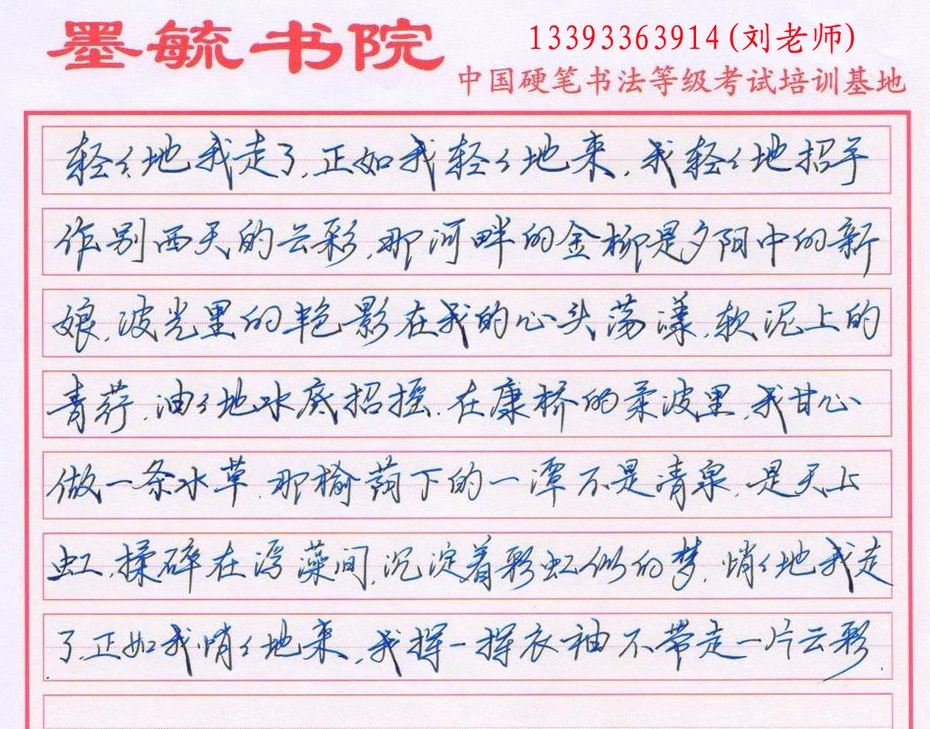 墨毓书院
13393363914(刘老师)
中国硬笔书法等级考试培训基地
轻々地我走了,正如我轻々地来,我轻々地招手
作别西天的云彩,那河畔的金柳是夕阳中的新
娘,波光里的艳影在我的心头荡漾,软泥上的
青荇,油々地水底招摇,在康桥的柔波里,我甘心
做一条水草,那榆荫下的一潭不是清泉,是天上
虹,揉碎在浮藻间,沉淀着彩虹似的梦,悄々地我走
了,正如我悄々地来,我挥一挥衣袖不带走一片云彩.